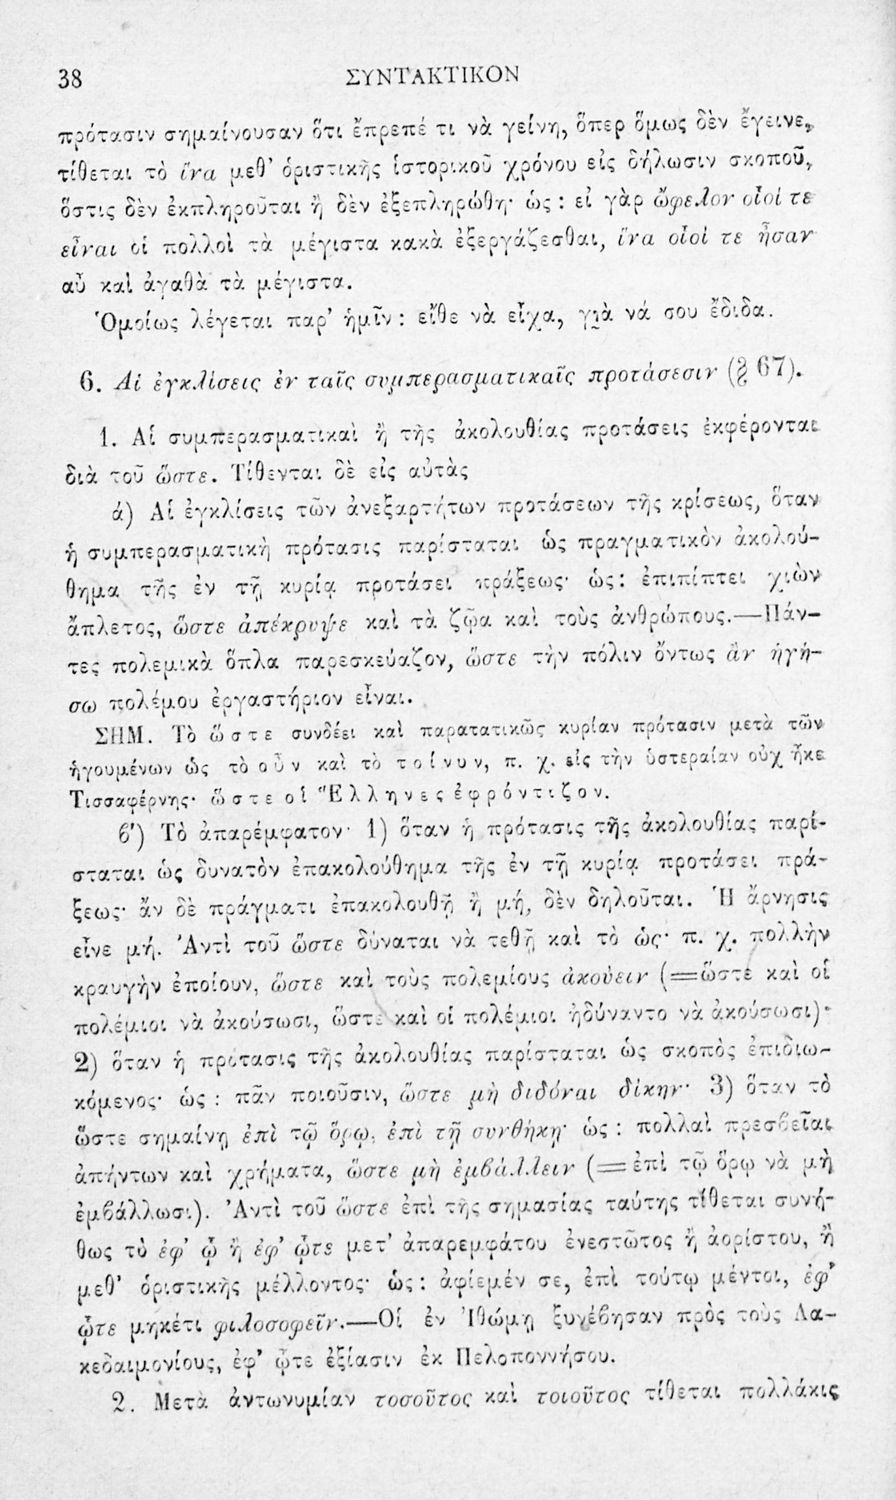 38
ΣΥΝΤΑΚΤΙΚΟΝ
πρότασιν σημαίνουσαν ὅτι ἔπρεπέ τι νὰ γείνῃ, ὅπερ ὅμως δὲν ἔγεινε,
τίθεται τὸ ἵνα μεθ' ὁριστικῆς ἱστορικοῦ χρόνου εἰς δήλωσιν σκοποῦ,
ὅστις δὲν ἐκπληροῦται ἢ δὲν ἐξεπληρώθη· ὡς : εἰ γὰρ ὤφελον οἷοί τε
εἶναι οἱ πολλοὶ τὰ μέγιστα κακὰ ἐξεργάζεσθαι, ἵνα οἷοί τε ἦσαν
αὖ καὶ ἀγαθὰ τὰ μέγιστα.
Ὁμοίως λέγεται παρ' ἡμῖν : εἴθε νὰ εἶχα, γιὰ νά σου ἔδιδα.
6. Αἱ ἐγκλίσεις ἐν ταῖς συμπερασματικαῖς προτάσεσιν (§ 67).
1. Αἱ συμπερασματικαὶ ἢ τῆς ἀκολουθίας προτάσεις ἐκφέρονται
διὰ τοῦ ὥστε. Τίθενται δὲ εἰς αὐτὰς
ά) Αἱ ἐγκλίσεις τῶν ἀνεξαρτήτων προτάσεων τῆς κρίσεως, ὅταν
ἡ συμπερασματικὴ πρότασις παρίσταται ὡς πραγματικὸν ἀκολού-
θημα τῆς ἐν τῇ κυρίᾳ προτάσει πράξεως· ὡς: ἐπιπίπτει χιὼν
ἄπλετος, ὥστε ἀπέκρυψε καὶ τὰ ζῷα καὶ τοὺς ἀνθρώπους.—Πάν-
τες πολεμικὰ ὅπλα παρεσκεύαζον, ὥστε τὴν πόλιν ὄντως ἂν ἡγή-
σω πολέμου ἐργαστήριον εἶναι.
ΣΗΜ. Τὸ ὥστε συνδέει καὶ παρατατικῶς κυρίαν πρότασιν μετὰ τῶν
ἡγουμένων ὡς τὸ οὖν καὶ τὸ τοίνυν, π. χ. εἰς τὴν ὑστεραίαν οὐχ ἧκε
Τισσαφέρνης· ὥστε οἱ Ἕλληνες ἐφρόντιζον.
β') Τὸ ἀπαρέμφατον· 1) ὅταν ἡ πρότασις τῆς ἀκολουθίας παρί-
σταται ὡς δυνατὸν ἐπακολούθημα τῆς ἐν τῇ κυρίᾳ προτάσει πρά-
ξεως· ἂν δὲ πράγματι ἐπακολουθῇ ἢ μή, δὲν δηλοῦται. Ἡ ἄρνησις
εἶνε μή. Ἀντὶ τοῦ ὥστε δύναται νὰ τεθῇ καὶ τὸ ὡς· π. χ. πολλὴν
κραυγὴν ἐποίουν, ὥστε καὶ τοὺς πολεμίους ἀκούειν (=ὥστε καὶ οἱ
πολέμιοι νὰ ἀκούσωσι, ὥστε καὶ οἱ πολέμιοι ἠδύναντο νὰ ἀκούσωσι)·
2) ὅταν ἡ πρότασις τῆς ἀκολουθίας παρίσταται ὡς σκοπὸς ἐπιδιω-
κόμενος· ὡς : πᾶν ποιοῦσιν, ὥστε μὴ διδόναι δίκην· 3) ὅταν τὸ
ὥστε σημαίνῃ ἐπὶ τῷ ὅρῳ, ἐπὶ τῇ συνθήκῃ· ὡς : πολλαὶ πρεσβεῖαι
ἀπήντων καὶ χρήματα, ὥστε μὴ ἐμβάλλειν (=ἐπὶ τῷ ὅρῳ νὰ μὴ
ἐμβάλλωσι). Ἀντὶ τοῦ ὥστε ἐπὶ τῆς σημασίας ταύτης τίθεται συνή-
θως τὸ ἐφ' ᾧ ἢ ἐφ' ᾧτε μετ' ἀπαρεμφάτου ἐνεστῶτος ἢ ἀορίστου, ἢ
μεθ' ὁριστικῆς μέλλοντος· ὡς : ἀφίεμέν σε, ἐπὶ τούτῳ μέντοι, ἐφ'
ᾧτε μηκέτι φιλοσοφεῖν.—Οἱ ἐν Ἰθώμῃ ξυνέβησαν πρὸς τοὺς Λα-
κεδαιμονίους, ἐφ' ᾧτε ἐξίασιν ἐκ Πελοποννήσου.
2. Μετὰ ἀντωνυμίαν τοσοῦτος καὶ τοιοῦτος τίθεται πολλάκις